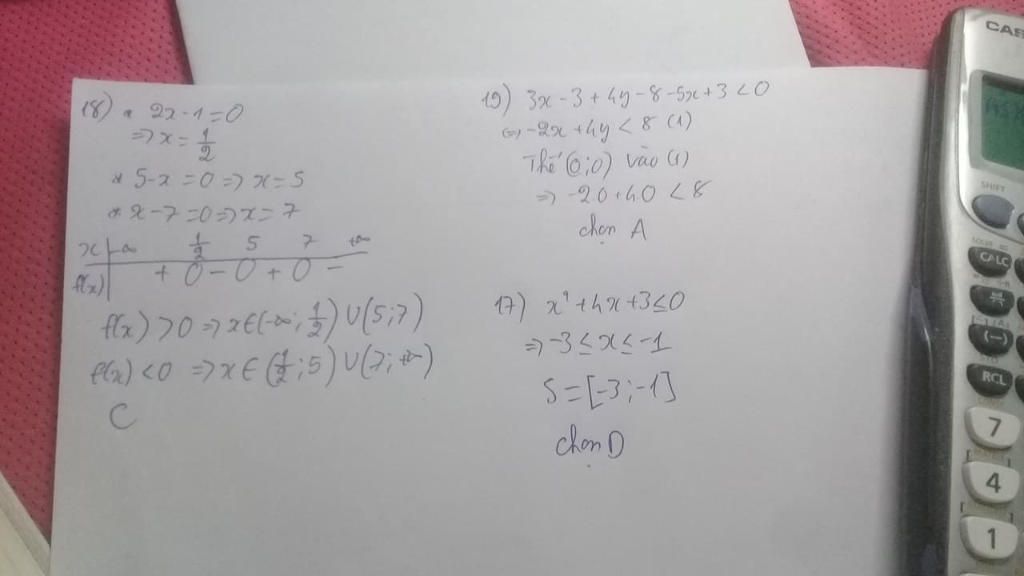 18) * 2x-1=0
=> x = 1/2
* 5-x =0 => x=5
* x-7=0 => x= 7
x | -∞ 1/2 5 7 +∞
f(x) | + 0 - 0 + 0 -
f(x) >0 => x∈(-∞; 1/2) ∪(5;7)
f(x) <0 => x∈ (1/2;5) ∪(7;+∞)
C
19) 3x-3+4y-8-5x+3<0
<=> -2x+4y < 8 (1)
Thế (0;0) vào (1)
=> -2.0+4.0 <8
chọn A
17) x²+4x+3≤0
=> -3≤x≤-1
S=[-3;-1]
chọn D
CAS
SHIFT
SOLVE
CALC
(-)
RCL
7
4
1